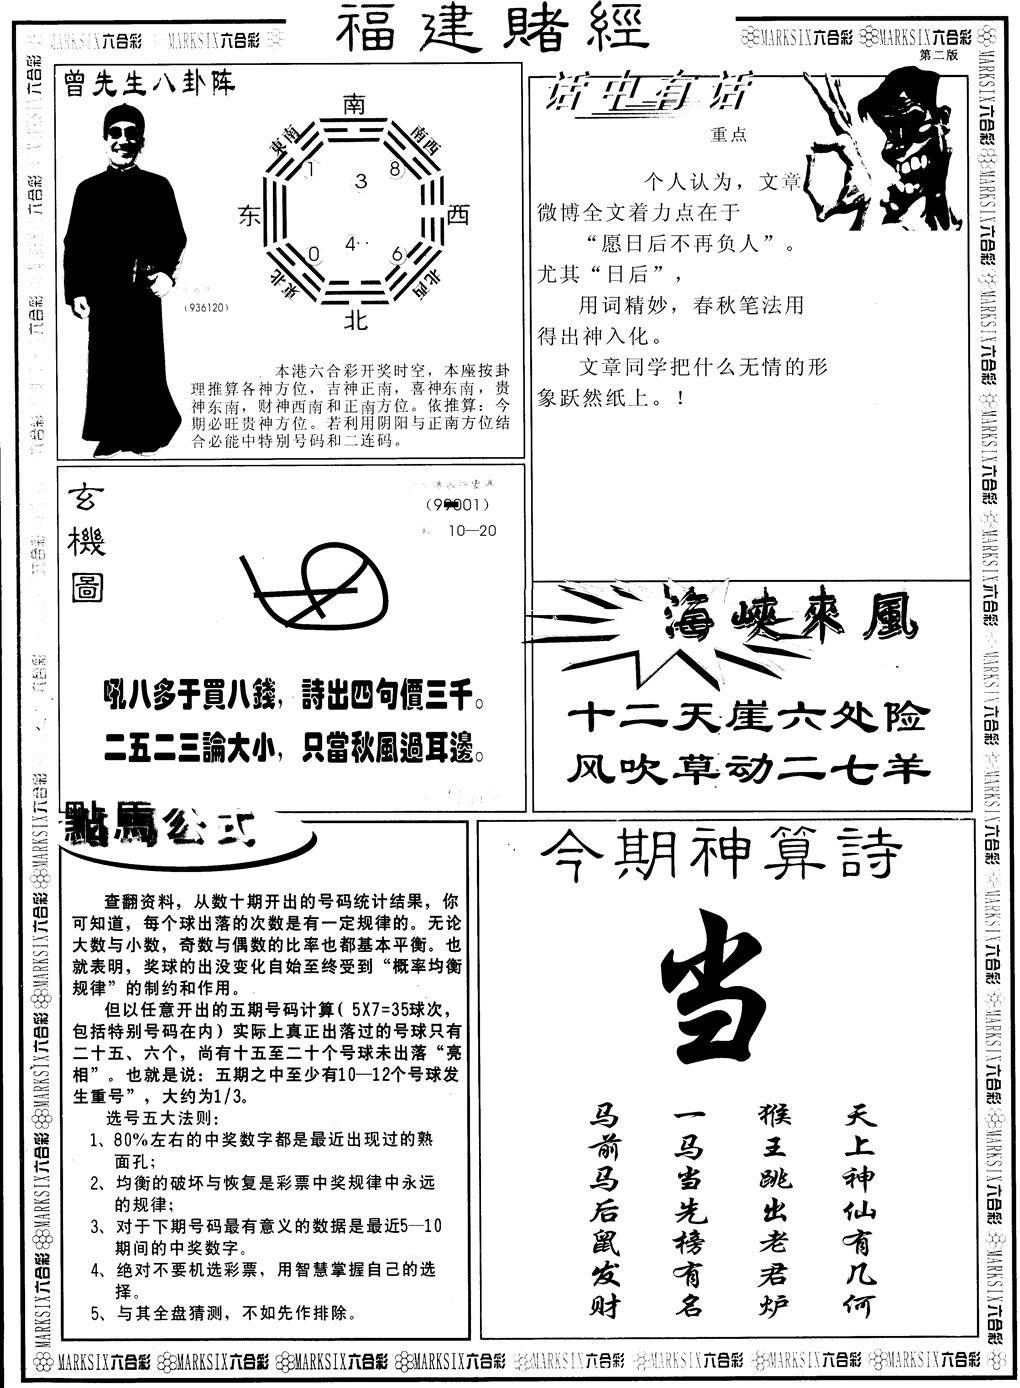 福建賭經
MARKSIX六合彩 MARKSIX六合彩
MARKSIX六合彩 MARKSIX六合彩
第二版
曾先生八卦阵
南
東南
南西
1
3
8
东
西
0
4
6
東北
北西
北
(936120)
本港六合彩开奖时空，本座按卦
理推算各神方位，吉神正南，喜神东南，贵
神东南，财神西南和正南方位。依推算：今
期必旺贵神方位。若利用阴阳与正南方位结
合必能中特别号码和二连码。
话中有话
重点
个人认为，文章
微博全文着力点在于
“愿日后不再负人”。
尤其“日后”，
用词精妙，春秋笔法用
得出神入化。
文章同学把什么无情的形
象跃然纸上。！
玄機圖
10—20
吼八多于買八錢，詩出四句價三千。
二五二三論大小，只當秋風過耳邊。
海峽來風
十二天崖六处险
风吹草动二七羊
點馬公式
查翻资料，从数十期开出的号码统计结果，你
可知道，每个球出落的次数是有一定规律的。无论
大数与小数，奇数与偶数的比率也都基本平衡。也
就表明，奖球的出没变化自始至终受到“概率均衡
规律”的制约和作用。
但以任意开出的五期号码计算( 5X7=35球次，
包括特别号码在内）实际上真正出落过的号球只有
二十五、六个，尚有十五至二十个号球未出落“亮
相”。也就是说：五期之中至少有10—12个号球发
生重号”，大约为1/3。
选号五大法则：
1、80%左右的中奖数字都是最近出现过的熟
面孔；
2、均衡的破坏与恢复是彩票中奖规律中永远
的规律；
3、对于下期号码最有意义的数据是最近5—10
期间的中奖数字。
4、绝对不要机选彩票，用智慧掌握自己的选
择。
5、与其全盘猜测，不如先作排除。
今期神算詩
当
天上神仙有几何
猴王跳出老君炉
一马当先榜有名
马前马后鼠发财
MARKSIX六合彩 MARKSIX六合彩 MARKSIX六合彩 MARKSIX六合彩 MARKSIX六合彩 MARKSIX六合彩 MARKSIX六合彩 MARKSIX六合彩